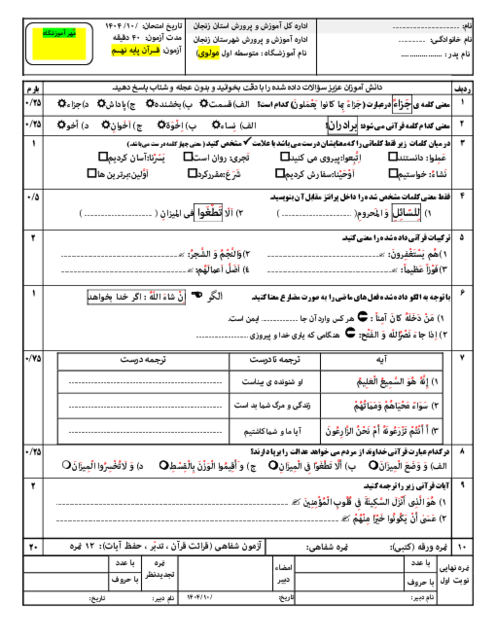 نام: ........................
نام خانوادگی: ............
نام پدر : ..................
اداره کل آموزش و پرورش استان زنجان
اداره آموزش و پرورش شهرستان زنجان
نام آموزشگاه : متوسطه اول مولوی)
تاریخ امتحان: ۱۴۰۴/۱۰/
مدت آزمون: ۴۰ دقیقه
آزمون: قرآن پایه نهم
مهر آموزشگاه
ردیف
دانش آموزان عزیز سؤالات داده شده را با دقت بخوانید و بدون عجله و شتاب پاسخ دهید.
بارم
۱ معنی کلمه ی جَزاءً درعبارت (جَزاءً بِمَا كانُوا يَعْمَلُونَ) کدام است؟ الف) قسمت ب) بخشنده ج) پاداش د) جزاء ۰/۲۵
۲ معنی کدام کلمه قرآنی می شود: برادران؟ الف) نِساء ب) إِخْوَة ج) أَخَوانِ د) أخو ۰/۲۵
۳ در میان کلمات زیر فقط کلماتی را که معنایشان درست می باشد با علامت ✓ مشخص کنید. ( معنی چهار کلمه درست می باشد.) ۱
عَمِلوا: دانستند إِتَّبعوا: پیروی می کنید تجری: روان است یَسَّرْنا: آسان کردیم
نَشاءُ: خواستیم أَوْحَيْنا: سفارش کردیم شَرَعَ: مقرر کرد أوَّلین: برترین ها
۴ فقط معنی کلمات مشخص شده را داخل پرانتز مقابل آن بنویسید. ۰/۵
۱) لِلسّائِلِ وَ المَحرومِ( ........................ ) ۲) أَلّا تَطْغَوا فی المیزانِ ( ........................ )
۵ ترکیبات قرآنی داده شده را معنی کنید. ۲
۱) هُم یَستَغفِرونَ: ........................ ۲) وَالنَّجْمُ وَ الشَّجَرُ: ........................
۳) فَوْزاً عَظیماً: ........................ ۴) أَضَلَّ أَعمالَهُم: ........................
۶ با توجه به الگو داده شده فعل های ماضی را به صورت مضارع معنا کنید. الگو ☜ إِنْ شاءَ اللهُ : اگر خدا بخواهد ۱
۱) مَنْ دَخَلَهُ كانَ آمِناً : هر کس وارد آن جا ............... ایمن است.
۲) إِذا جاءَ نَصْرُالله وَ الفَتْح: هنگامی که یاری خدا و پیروزی ........................
۷ آیه ترجمه نادرست ترجمه درست ۰/۷۵
۱) إِنَّهُ هُوَ السَّمیعُ العَلیمُ او شنونده ی بیناست ........................
۲) سَواءً مَحْیاهُمْ وَمَماتُهُمْ زندگی و مرگ شما بد است ........................
۳) أَ أَنْتُمْ تَزْرَعُونَهُ أَمْ نَحْنُ الزّارِعُونَ آیا ما و شما کاشتیم ........................
۸ در کدام عبارت قرآنی خداوند از مردم می خواهد عدالت را برپا دارند؟ ۰/۲۵
الف) وَ وَضَعَ الْمیزانَ ب) أَلّا تَطْغَوْا فِی الْمیزانِ ج) وَ أَقیمُوا الْوَزْنَ بِالْقِسْطِ د) وَ لاتُخْسِرُوا الْمیزانَ
۹ آیات قرآنی زیر را ترجمه کنید. ۲
۱) هُوَ الَّذی أَنْزَلَ السَّکینَةَ فی قُلُوبِ الْمُؤْمِنینَ ........................
۲) عَسَى أَنْ يَكُونُوا خَيْرًا مِنْهُمْ ........................
۱۰ نمره ورقه (کتبی): نمره شفاهی: آزمون شفاهی (قرائت قرآن ، تدبّر ، حفظ آیات): ۱۲ نمره ۲۰
نمره نهایی نوبت اول
با عدد
با حروف
امضاء دبیر
نمره تجدیدنظر
با عدد
با حروف
نام دبیر: تاریخ: ۱۴۰۴/۱۰/ نام دبیر: تاریخ: